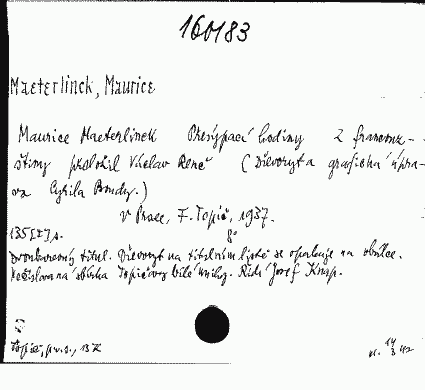 160183
Maeterlinck, Maurice
Maurice Maeterlinck Přesýpací hodiny Z francouz-
štiny přeložil Václav René (Dřevoryt a grafická úpra-
va Cyrila Boudy.)
V Praze, F. Topič, 1937.
135 [I] s. 8°
Dvoubarevný titul. Dřevoryt na titulním listě se opakuje na obálce.
Nečíslovaná sbírka Topičovy bílé knihy. Řídí Josef Knap.
Topič, 137